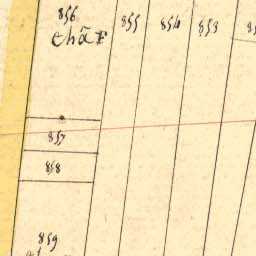 856
855
854
853
857
858
859